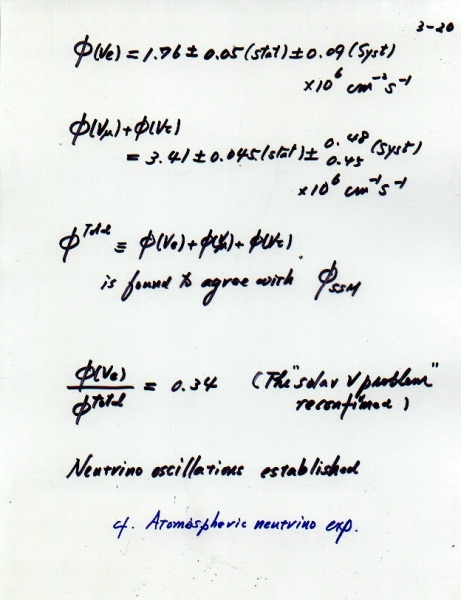 3-20
ϕ(νe) = 1.76 ± 0.05 (stat) ± 0.09 (Syst)
×10⁶ cm⁻² s⁻¹
ϕ(νμ)+ϕ(ντ)
= 3.41 ± 0.045 (stat) ± 0.48 0.45 (Syst)
×10⁶ cm⁻¹ s⁻¹
ϕ^Total ≡ ϕ(νe)+ϕ(νμ)+ϕ(ντ).
is found to agree with ϕSSM
ϕ(νe) / ϕ^total = 0.34 (The "solar ν problem"
reconfirmed)
Neutrino oscillations established
cf. Atomospheric neutrino exp.